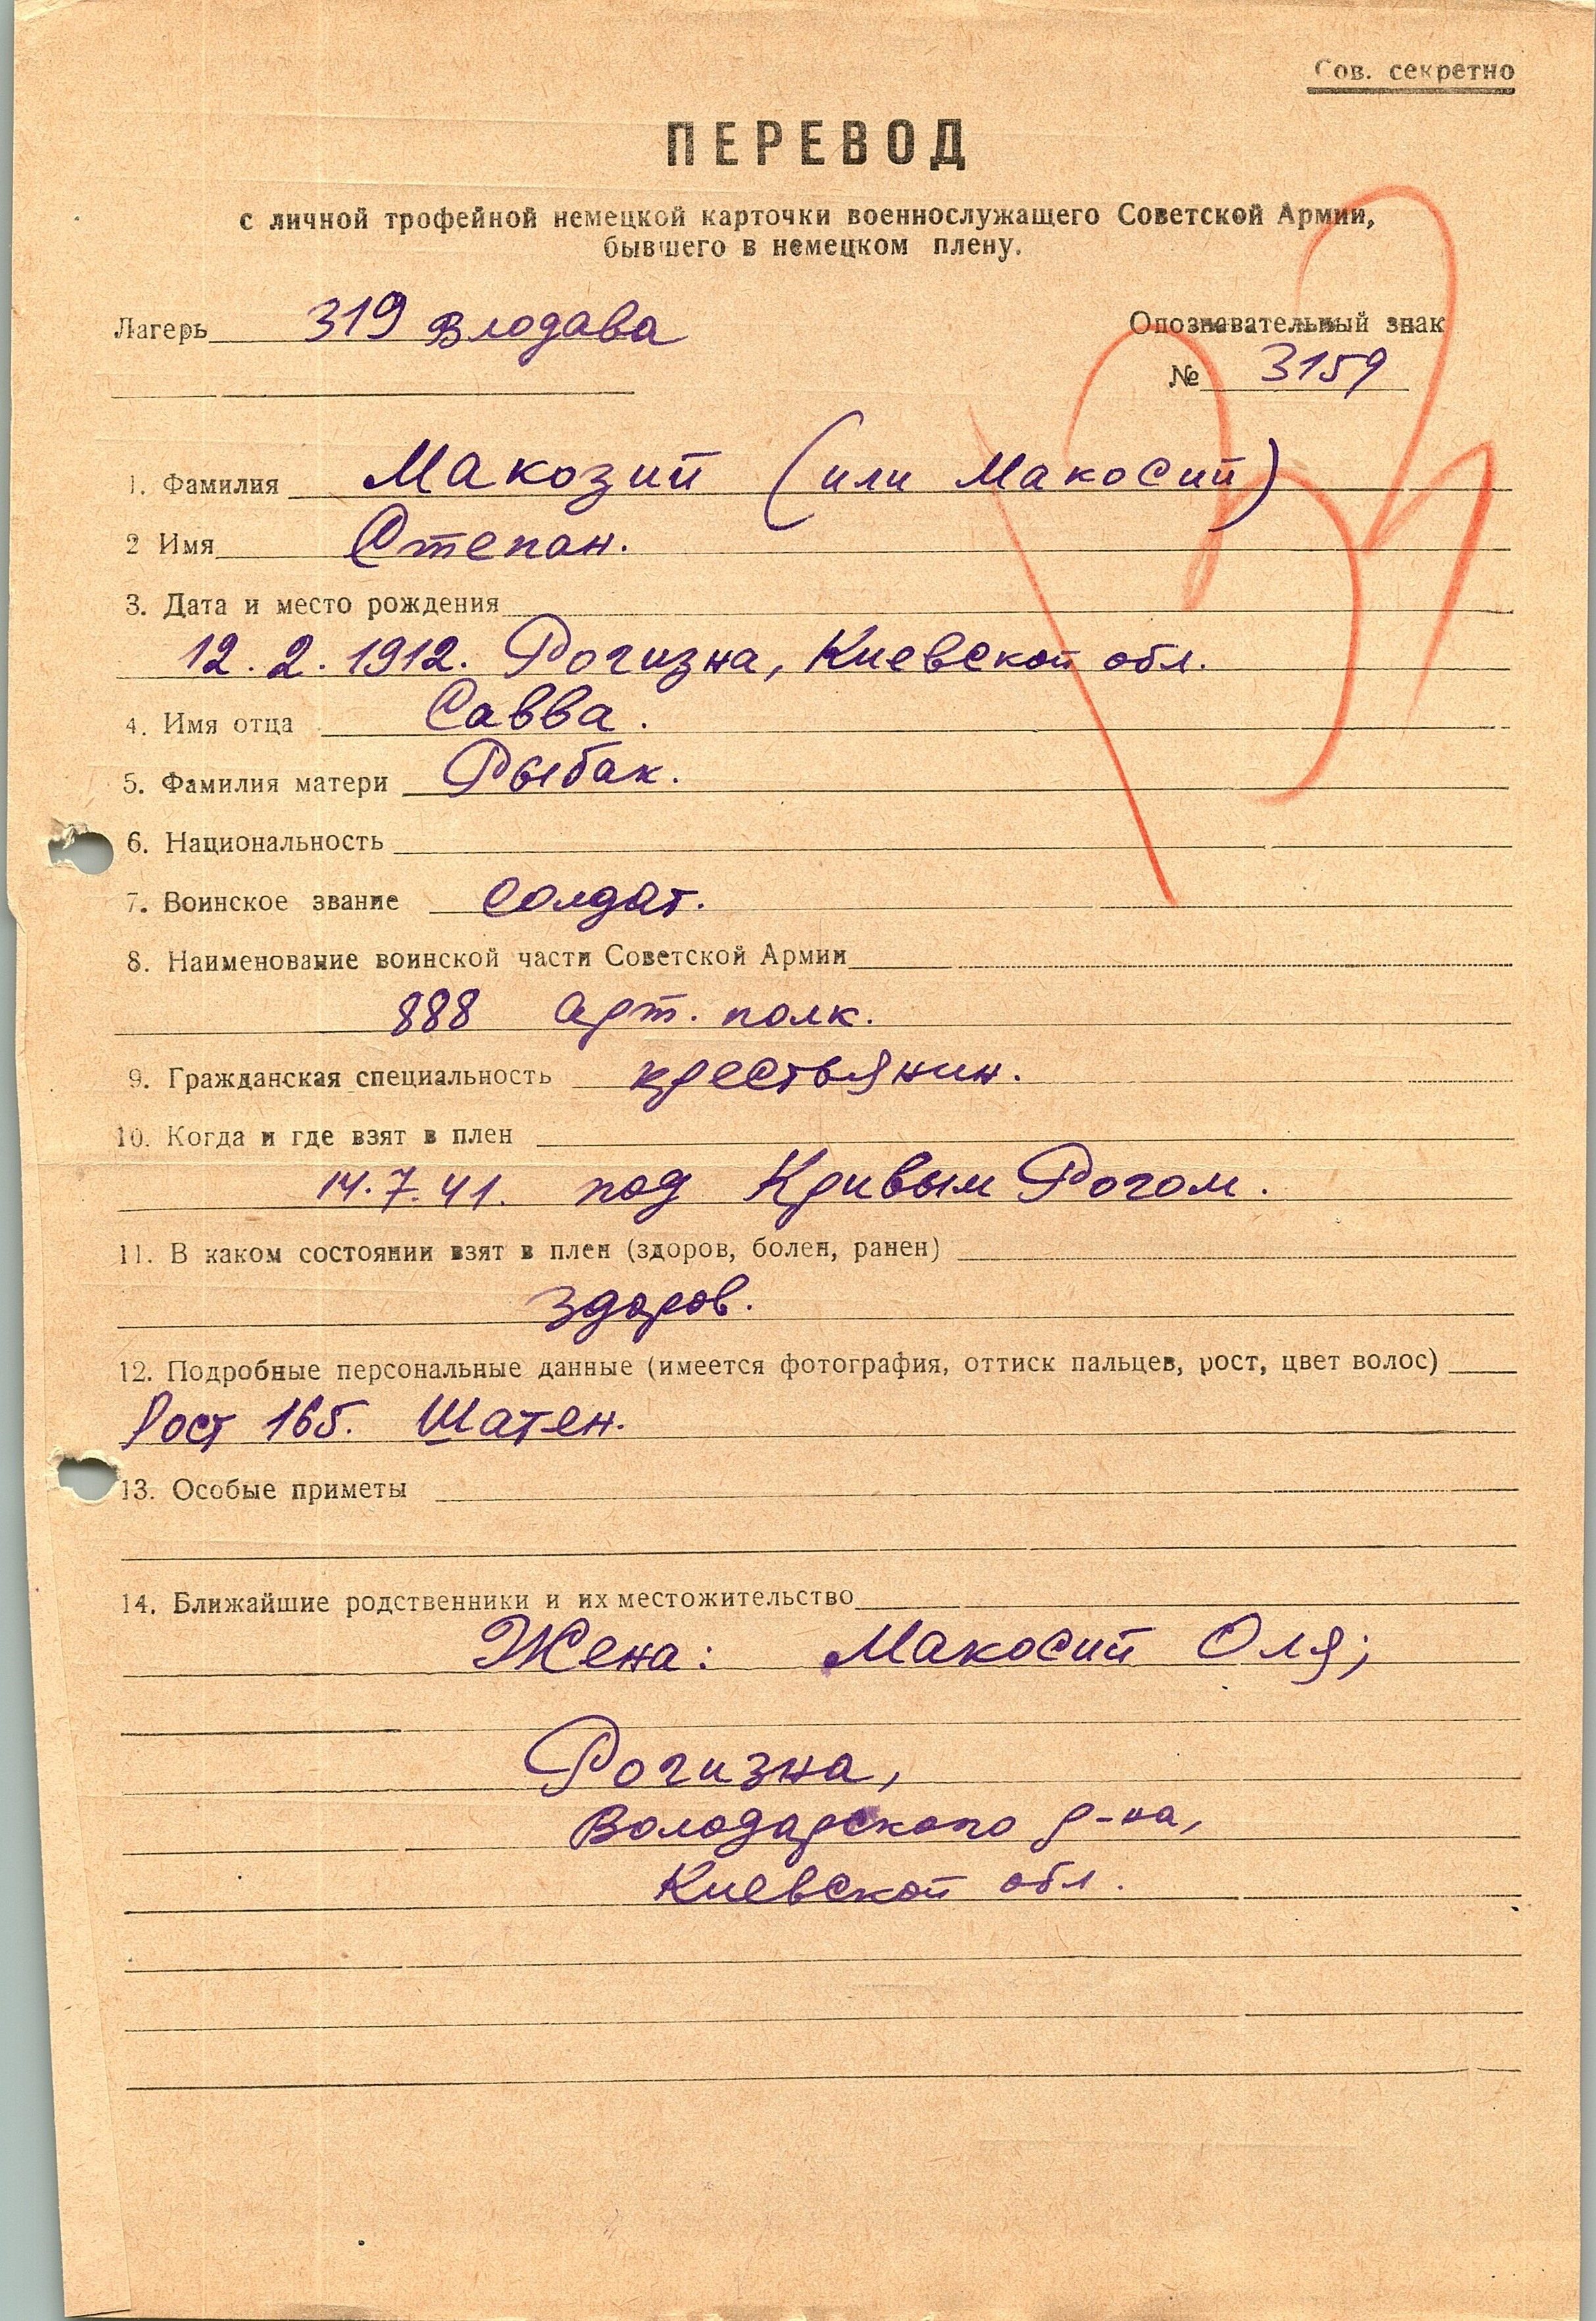 Сов. секретно
ПЕРЕВОД
с личной трофейной немецкой карточки военнослужащего Советской Армии,
бывшего в немецком плену.
Лагерь 319 Влодава
Опознавательный знак
№ 3159
1. Фамилия Макозий (или Макосий)
2 Имя Степан.
3. Дата и место рождения
12.2.1912. Рогизна, Киевской обл.
4. Имя отца Савва.
5. Фамилия матери Рыбак.
6. Национальность
7. Воинское звание солдат.
8. Наименование воинской части Советской Армии
888 арт. полк.
9. Гражданская специальность крестьянин.
10. Когда и где взят в плен
14.7.41. под Кривым Рогом.
11. В каком состоянии взят в плен (здоров, болен, ранен)
здоров.
12. Подробные персональные данные (имеется фотография, оттиск пальцев, рост, цвет волос)
Рост 165. Шатен.
13. Особые приметы
14. Ближайшие родственники и их местожительство
Жена: Макосий Оля;
Рогизна,
Володарского р-на,
Киевской обл.